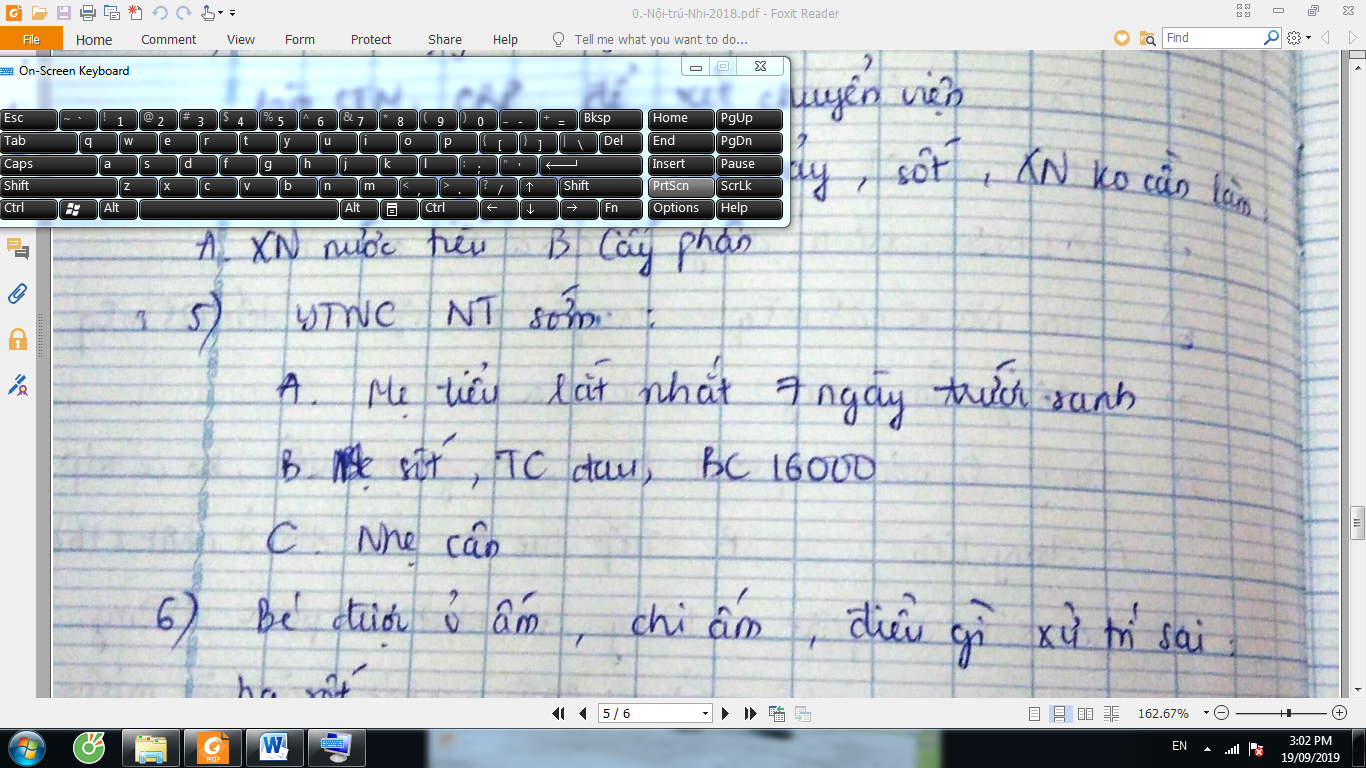 0.-Nội-trú-Nhi-2018.pdf - Foxit Reader
File Home Comment View Form Protect Share Help Tell me what you want to do... Find
On-Screen Keyboard
Esc ~ ` ! 1 @ 2 # 3 $ 4 % 5 ^ 6 & 7 * 8 ( 9 ) 0 _ - + = Bksp Home PgUp
Tab q w e r t y u i o p { [ } ] | \ Del End PgDn
Caps a s d f g h j k l : ; " ' Insert Pause
Shift z x c v b n m < , > . ? / ↑ Shift PrtScn ScrLk
Ctrl Alt Alt Ctrl ← ↓ → Fn Options Help
chuyển viện
, sốt , XN ko cần làm.
A. XN nước tiểu B. Cấy phân
5) YTNC NT sớm :
A. Mẹ tiểu lắt nhắt 7 ngày trước sanh
B. Mẹ sốt , TC đau, BC 16000
C. Nhẹ cân
6) Bé được ủ ấm , chi ấm , điều gì xử trí sai :
hạ sốt
5 / 6 162.67%
EN 3:02 PM
19/09/2019